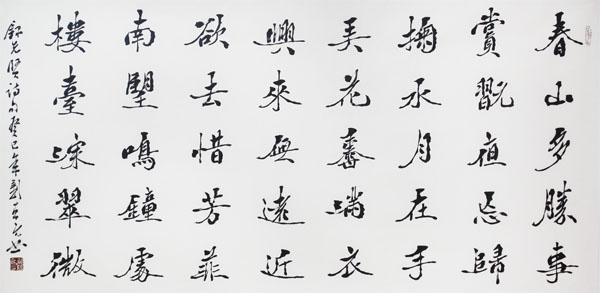 春山多勝事
賞翫夜忘歸
掬水月在手
弄花香滿衣
興來無遠近
欲去惜芳菲
南望鳴鐘處
樓臺深翠微
錄先賢詩句癸巳年